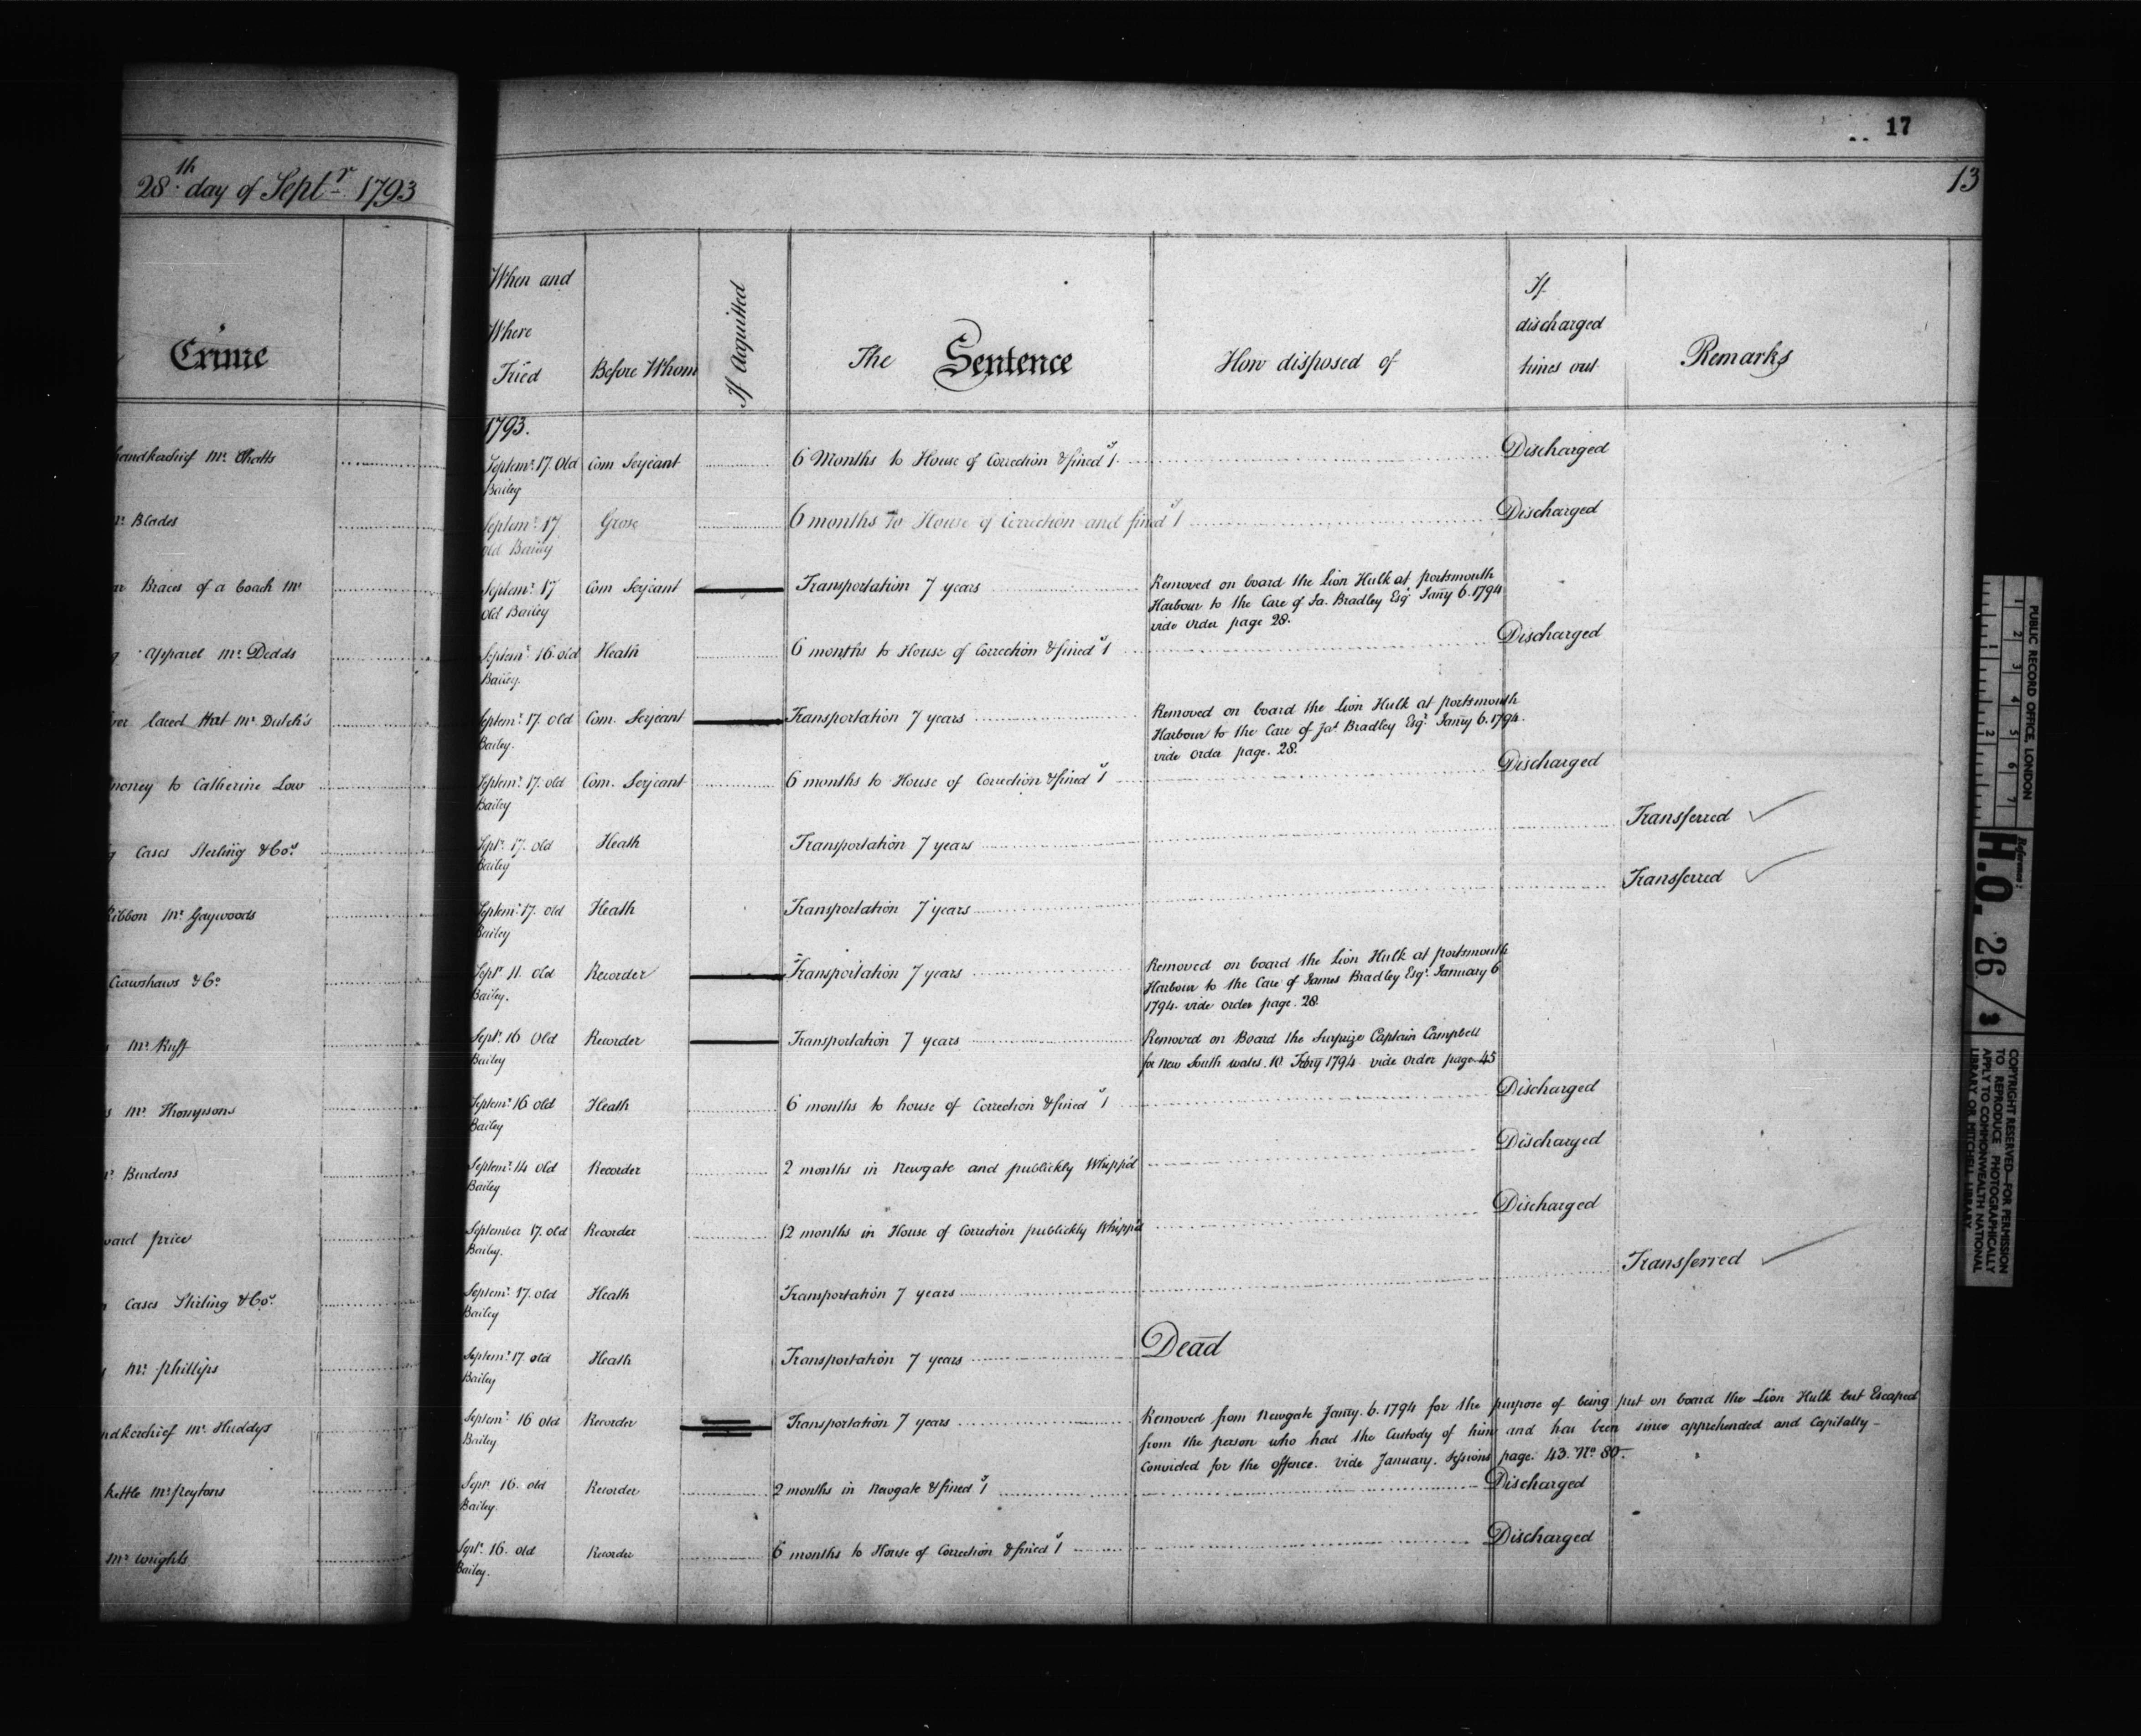 17
13
28th day of Septr 1793
Crime
When and
Where
Tried
Before Whom
If Acquitted
The Sentence
How disposed of
If
discharged
times out
Remarks
1793.
handkerchief Mr.
Septemr. 17. Old
Bailey
Com Serjeant
6 Months to House of Correction & fined 1s.
Discharged
Mr Blades
Septemr. 17
old Bailey
Grose
6 months to House of Correction and fined 1s
Discharged
Braces of a Coach Mr
Septemr. 17
Old Bailey
Com Serjeant
Transportation 7 years
Removed on board the Lion Hulk at portsmouth
Harbour to the Care of Ja. Bradley Esqr Jany 6. 1794
vide Order page 28.
Apparel Mr. Dodds
Septemr. 16. old
Bailey.
Heath
6 months to House of Correction & fined 1s
Discharged
laced Hat Mr Dutch's
Septemr. 17. old
Bailey.
Com. Serjeant
Transportation 7 years
Removed on board the Lion Hulk at portsmouth
Harbour to the Care of Jas. Bradley Esqr. Janry 6. 1794.
vide Order page. 28.
money to Catherine Low
Septemr. 17. old
Bailey
Com. Serjeant
6 months to House of Correction & fined 1s
Discharged
Cases Sterling & Cos.
Septr. 17. old
Bailey
Heath
Transportation 7 years
Transferred
Ribbon Mr Gaywoods
Septemr. 17. old
Bailey
Heath
Transportation 7 years
Transferred
Crawshaws & Co
Septr. 11. old
Bailey.
Recorder
Transportation 7 years
Removed on board the Lion Hulk at portsmouth
Harbour to the Care of James Bradley Esqr. January 6
1794. vide order page. 28.
Mr. Ruff
Septr. 16 Old
Bailey
Recorder
Transportation 7 years
Removed on Board the Surprize Captain Campbell
for New South wales. 10. Febry 1794 vide order page 45
Mr. Thompsons
Septemr. 16 old
Bailey
Heath
6 months to house of Correction & fined 1s
Discharged
Mr Burdens
Septemr. 14 old
Bailey
Recorder
2 months in Newgate and publickly Whipp'd
Discharged
price
September 17. old
Bailey.
Recorder
12 months in House of Correction publickly Whipp'd
Discharged
Cases Stirling & Cos.
Septemr. 17. old
Bailey
Heath
Transportation 7 years
Transferred
Mr. phillips
Septemr. 17. old
Bailey
Heath
Transportation 7 years
Dead
handkerchief Mr. Huddys
Septemr. 16 old
Bailey
Recorder
Transportation 7 years
Removed from Newgate Janry. 6. 1794 for the purpose of being put on board the Lion Hulk but Escaped
from the person who had the Custody of him and has been since apprehended and Capitally -
Convicted for the offence. vide January. Sessions page. 43. No. 80.
kettle Mr peytons
Septr. 16. old
Bailey.
Recorder
2 months in Newgate & fined 1s
Discharged
Mr wrights
Septr. 16. old
Bailey.
Recorder
6 months to House of Correction & fined 1s
Discharged
PUBLIC RECORD OFFICE, LONDON
1 2 3 4 5 6 7
1 2
Reference:
H.O. 26/3
COPYRIGHT RESERVED—FOR PERMISSION
TO REPRODUCE PHOTOGRAPHICALLY
APPLY TO COMMONWEALTH NATIONAL
LIBRARY OR MITCHELL LIBRARY